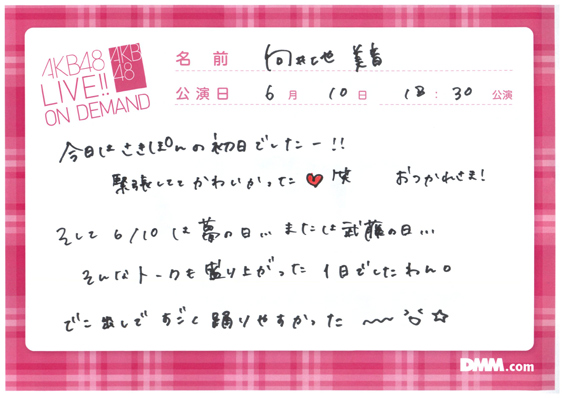 AKB48
LIVE!!
ON DEMAND
AKB
48
名前 向井地 美音
公演日 6月 10日 18:30 公演
今日はさきぽんの初日でしたー!!
緊張しててかわいかった♥笑 おつかれさま!
そして6/10は夢の日... または武藤の日...
そんなトークも盛り上がった1日でしたわん。
でこ出しですごく踊りやすかった 〜〜 ☆
DMM.com